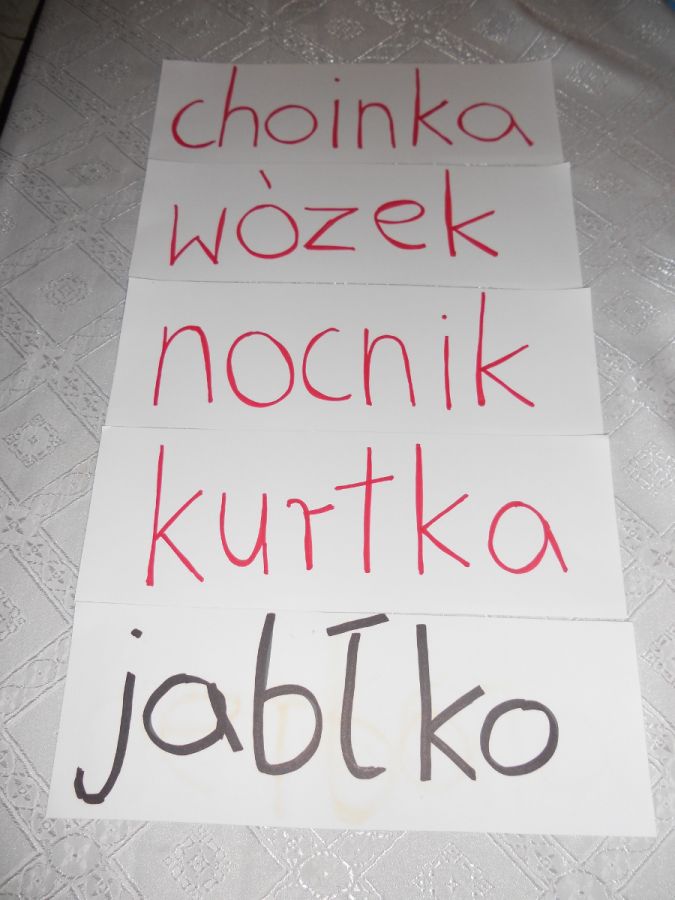 choinka
wòzek
nocnik
kurtka
jabłko